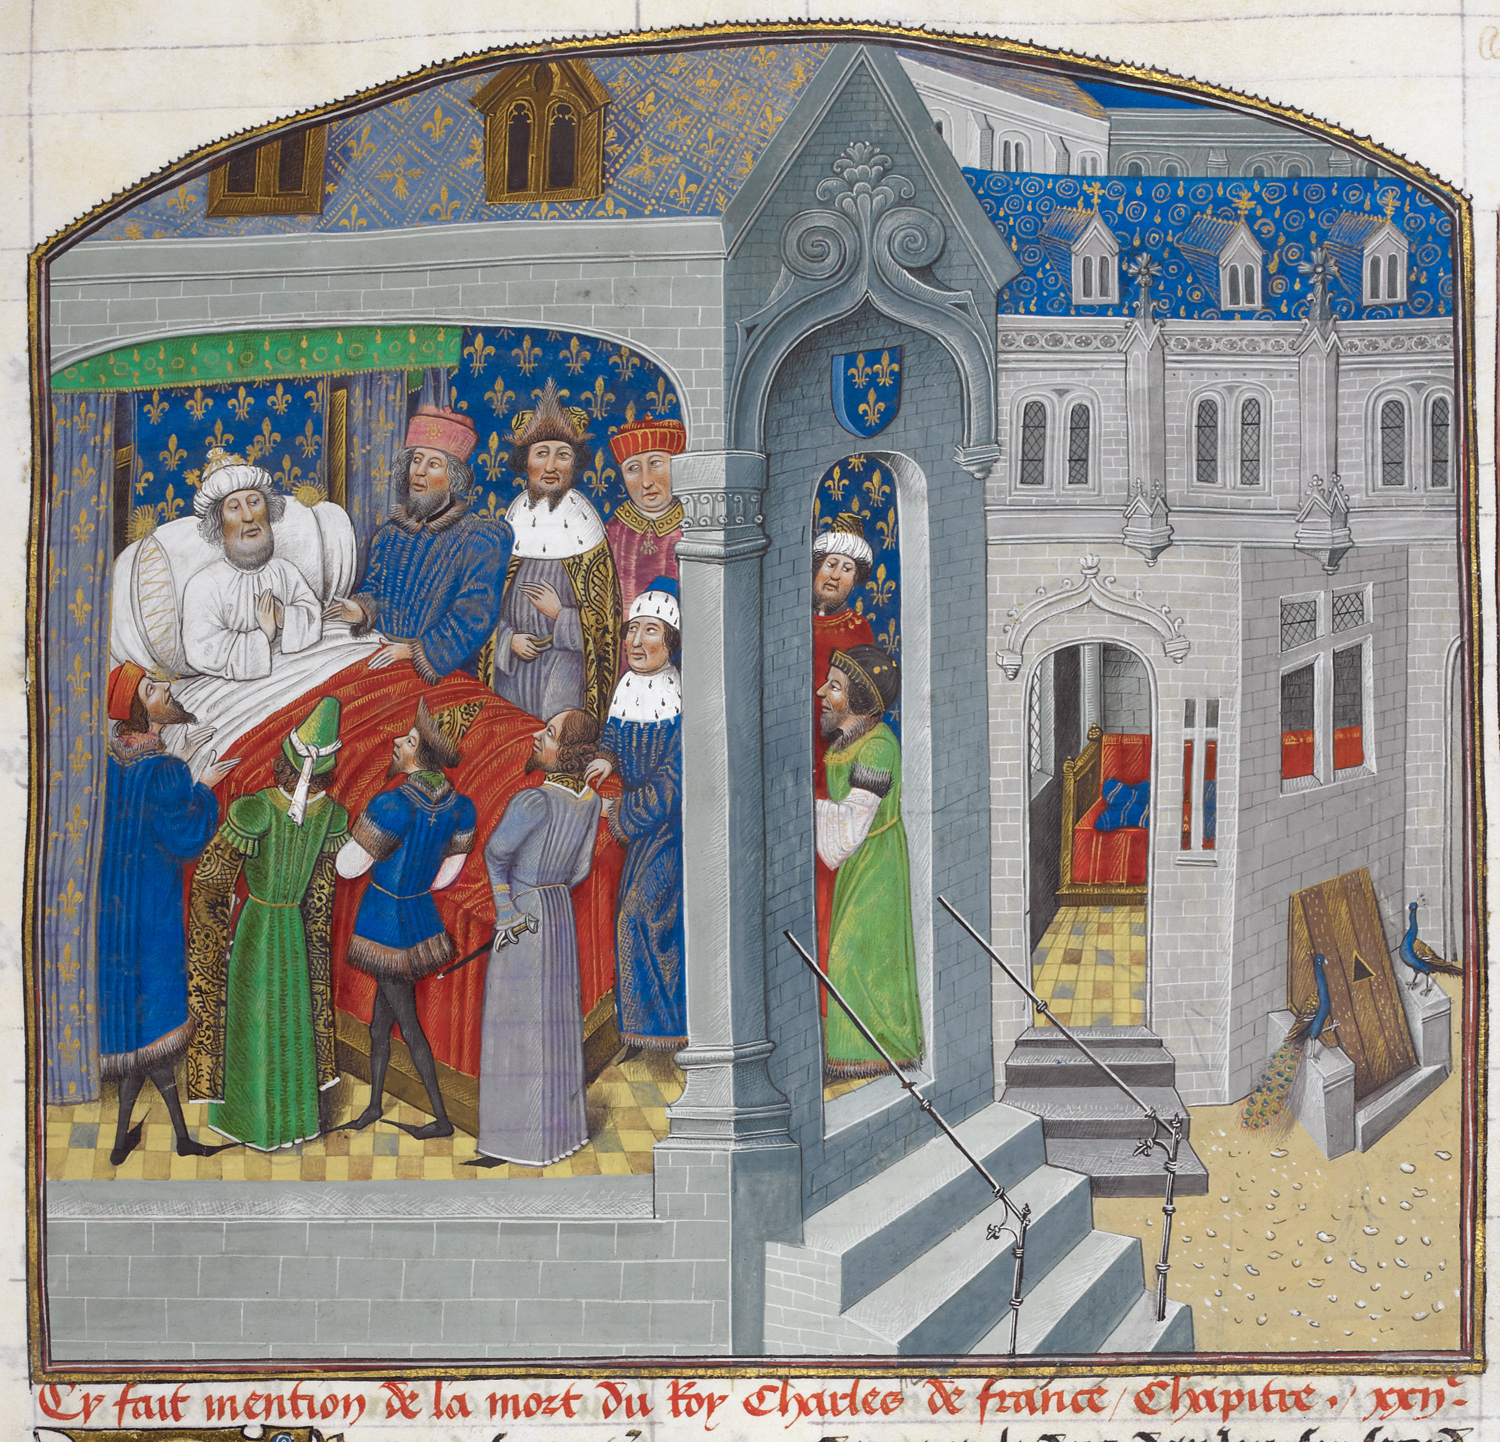 Cy fait mention de la mort du Roy Charles de france / Chapitre . xxij.